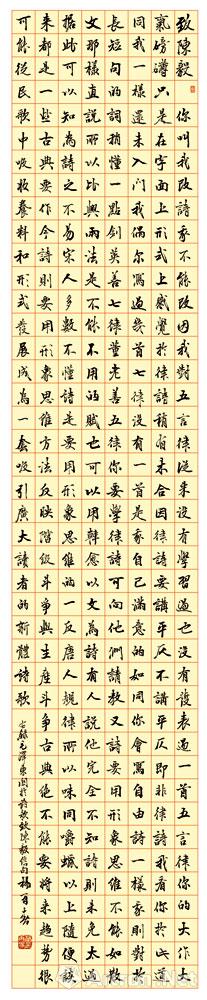 致陳毅 你叫我改詩我不能改因我對五言律從來沒有學習過也沒有發表過一首五言律你的大作大
氣磅礴只是在字面上形式上感覺於律詩稍有未合因律詩要講平仄不講平仄即非律詩我看你於此道
同我一樣還未入門我偶爾寫過幾首七律沒有一首是我自己滿意的如同你會寫自由詩一樣我則對於
長短句的詞稍懂一點劍英善七律董老善五律你要學律詩可向他們請教又詩要用形象思維不能如散
文那樣直說所以比興兩法是不能不用的賦也可以用韓愈以文為詩有人說他完全不知詩則未免太過
據此可以知為詩之不易宋人多數不懂詩是要用形象思維的一反唐人規律所以味同嚼蠟以上隨便談
來都是一些古典要作今詩則要用形象思維方法反映階級鬥爭與生產鬥爭古典絕不能要將來趨勢很
可能從民歌中吸收養料和形式發展成為一套吸引廣大讀者的新體詩歌